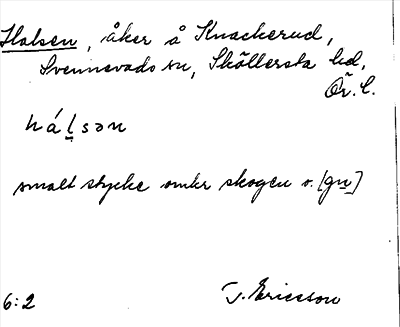 Halsen, åker å Knackerud,
Svennevads sn, Sköllersta hd,
Ör. l.
hálsən
smalt stycke omkr skogen o. [gn]
6:2
J. Ericsson